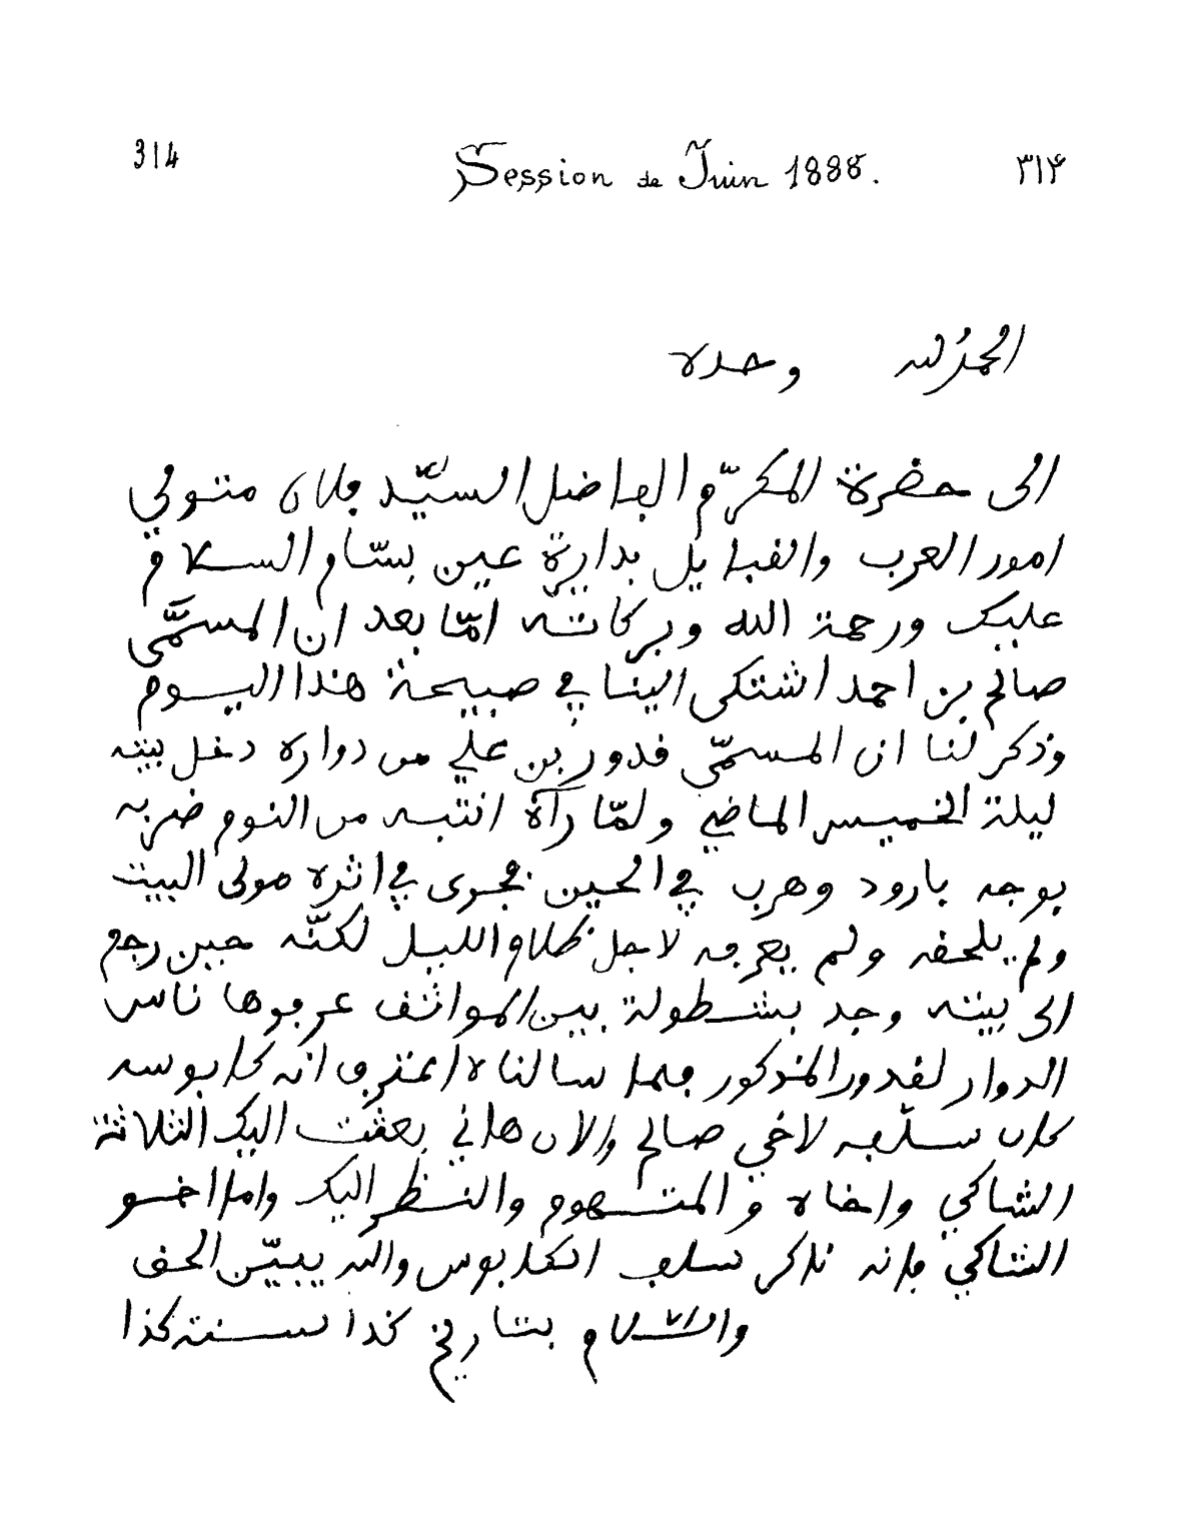 314 Session de Juin 1888. ٣١٤
الحمدُ لله وحده
الى حضرة المكرّم الفاضل السيّد فلان متولي
امور العرب والقبايل بدايرة عين بسّام السلام
عليك ورحمة الله وبركاته امّا بعد ان المسمَّى
صالح بن احمد اشتكى الينا في صبيحة هذا اليوم
وذكر لنا ان المسمّى قدور بن علي من دواره دخل بيته
ليلة الخميس الماضي ولمّا رآه انتبه من النوم ضربه
بوجه بارود وهرب في الحين فجرى في اثره مولى البيت
ولم يلحقه ولم يعرفه لاجل ظلام الليل لكنّه حين رجع
الى بيته وجد بشطولة بين المواثق عرفوها ناس
الدوار لقدور المذكور فلما سالناه اعترف انه كابوسه
كان سلّفه لاخي صالح والان هاني بعثت اليك الثلاثة
الشاكي واخاه و المتهوم والنظر اليك واما اخو
الشاكي فانه ناكر سلف الكابوس والله يبيّن الحق
والسّلام بتاريخ كذا سنة كذا